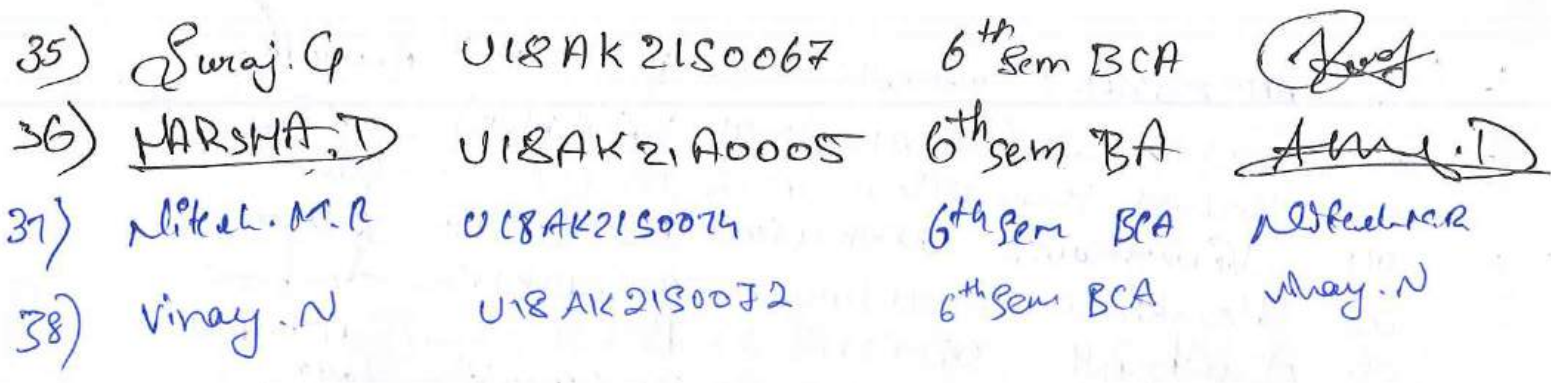 35) Suraj. G U18AK21S0067 6th Sem BCA
36) HARSHA. D U18AK21A0005 6th sem BA
37) Nitesh. M. R U18AK21S0074 6th Sem BCA Nitesh M.R
38) Vinay. N U18AK21S0072 6th Sem BCA Vinay. N